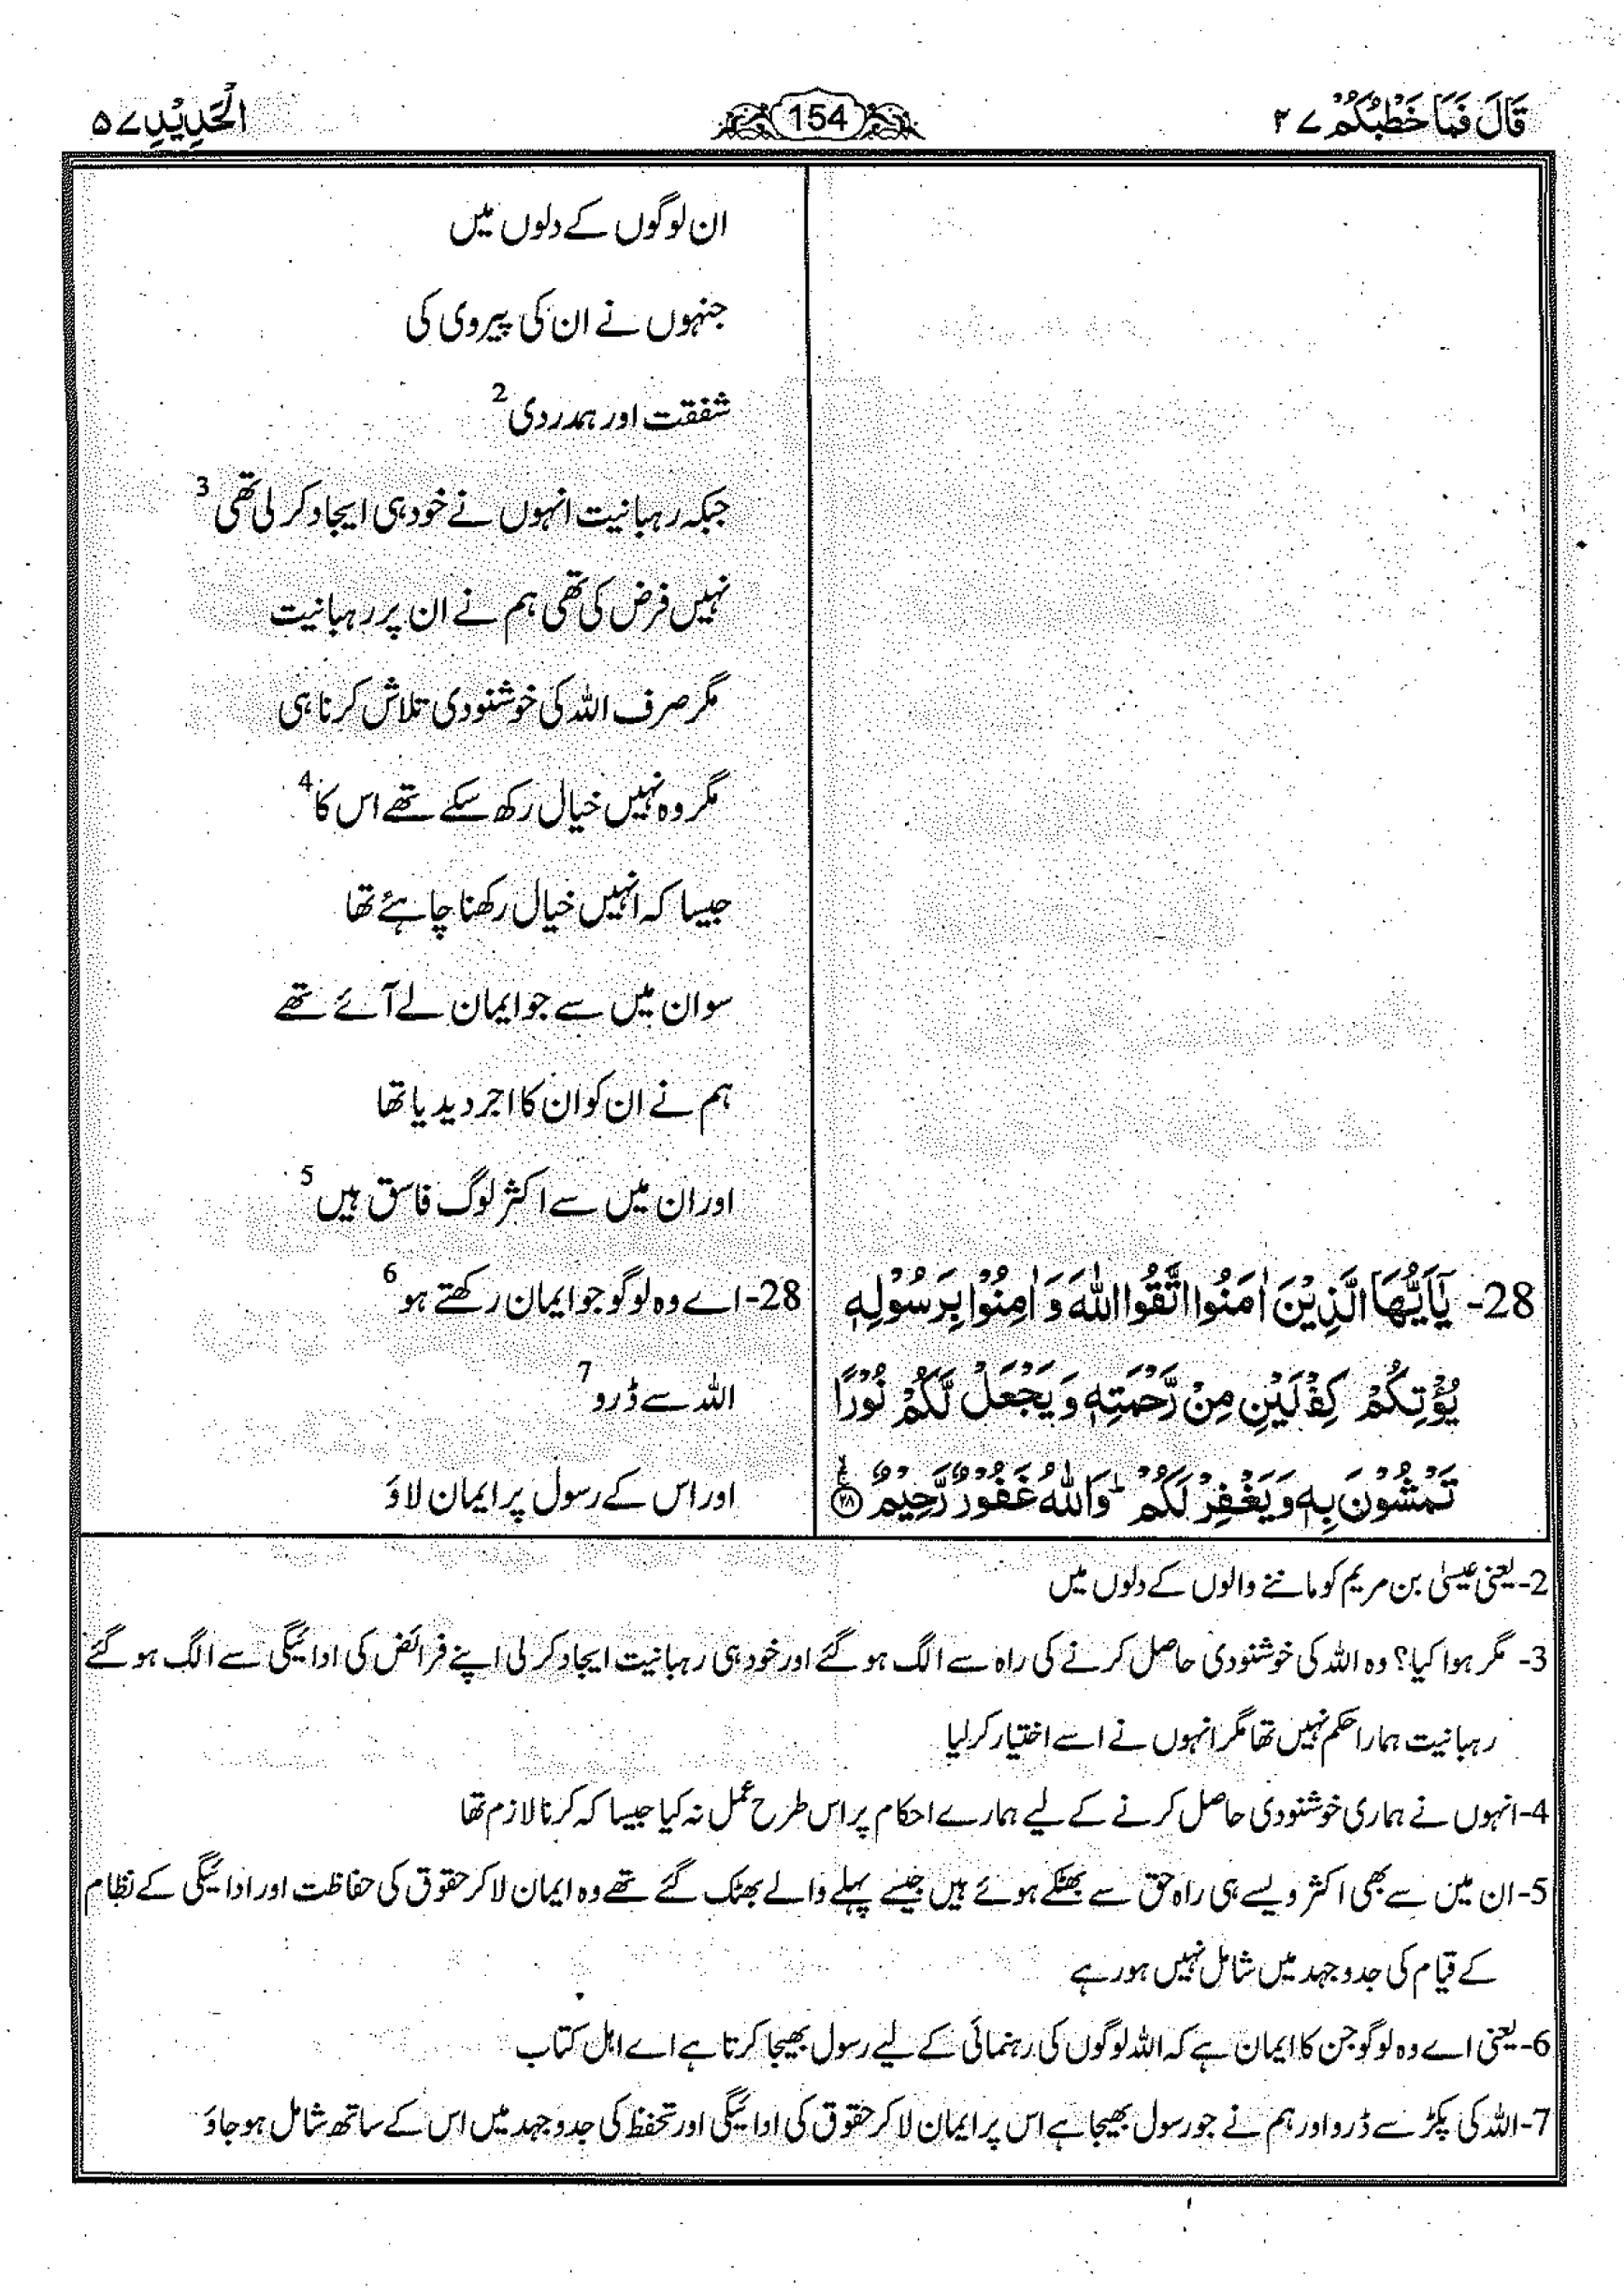 قَالَ فَمَا خَطْبُكُمْ ۲۷
154
الْحَدِيْدِ ۵۷
ان لوگوں کے دلوں میں
جنہوں نے ان کی پیروی کی
شفقت اور ہمدردی 2
جبکہ رہبانیت انہوں نے خود ہی ایجاد کر لی تھی 3
نہیں فرض کی تھی ہم نے ان پر رہبانیت
مگر صرف اللہ کی خوشنودی تلاش کرنا ہی
مگر وہ نہیں خیال رکھ سکے تھے اس کا 4
جیسا کہ انہیں خیال رکھنا چاہئے تھا
سو ان میں سے جو ایمان لے آئے تھے
ہم نے ان کو ان کا اجر دیدیا تھا
اور ان میں سے اکثر لوگ فاسق ہیں 5
28- يٰٓاَيُّهَا الَّذِيْنَ اٰمَنُوا اتَّقُوا اللّٰهَ وَ اٰمِنُوْا بِرَسُوْلِهٖ
يُؤْتِكُمْ كِفْلَيْنِ مِنْ رَّحْمَتِهٖ وَ يَجْعَلْ لَّكُمْ نُوْرًا
تَمْشُوْنَ بِهٖ وَ يَغْفِرْ لَكُمْ ؕ وَاللّٰهُ غَفُوْرٌ رَّحِيْمٌ ۲۸
28- اے وہ لوگو جو ایمان رکھتے ہو 6
اللہ سے ڈرو 7
اور اس کے رسول پر ایمان لاؤ
2- یعنی عیسیٰ بن مریم کو ماننے والوں کے دلوں میں
3- مگر ہوا کیا؟ وہ اللہ کی خوشنودی حاصل کرنے کی راہ سے الگ ہو گئے اور خود ہی رہبانیت ایجاد کر لی اپنے فرائض کی ادائیگی سے الگ ہو گئے
رہبانیت ہمارا حکم نہیں تھا مگر انہوں نے اسے اختیار کر لیا
4- انہوں نے ہماری خوشنودی حاصل کرنے کے لیے ہمارے احکام پر اس طرح عمل نہ کیا جیسا کہ کرنا لازم تھا
5- ان میں سے بھی اکثر ویسے ہی راہ حق سے بھٹکے ہوئے ہیں جیسے پہلے والے بھٹک گئے تھے وہ ایمان لا کر حقوق کی حفاظت اور ادائیگی کے نظام
کے قیام کی جدوجہد میں شامل نہیں ہو رہے
6- یعنی اے وہ لوگو جن کا ایمان ہے کہ اللہ لوگوں کی رہنمائی کے لیے رسول بھیجا کرتا ہے اے اہل کتاب
7- اللہ کی پکڑ سے ڈرو اور ہم نے جو رسول بھیجا ہے اس پر ایمان لا کر حقوق کی ادائیگی اور تحفظ کی جدوجہد میں اس کے ساتھ شامل ہو جاؤ